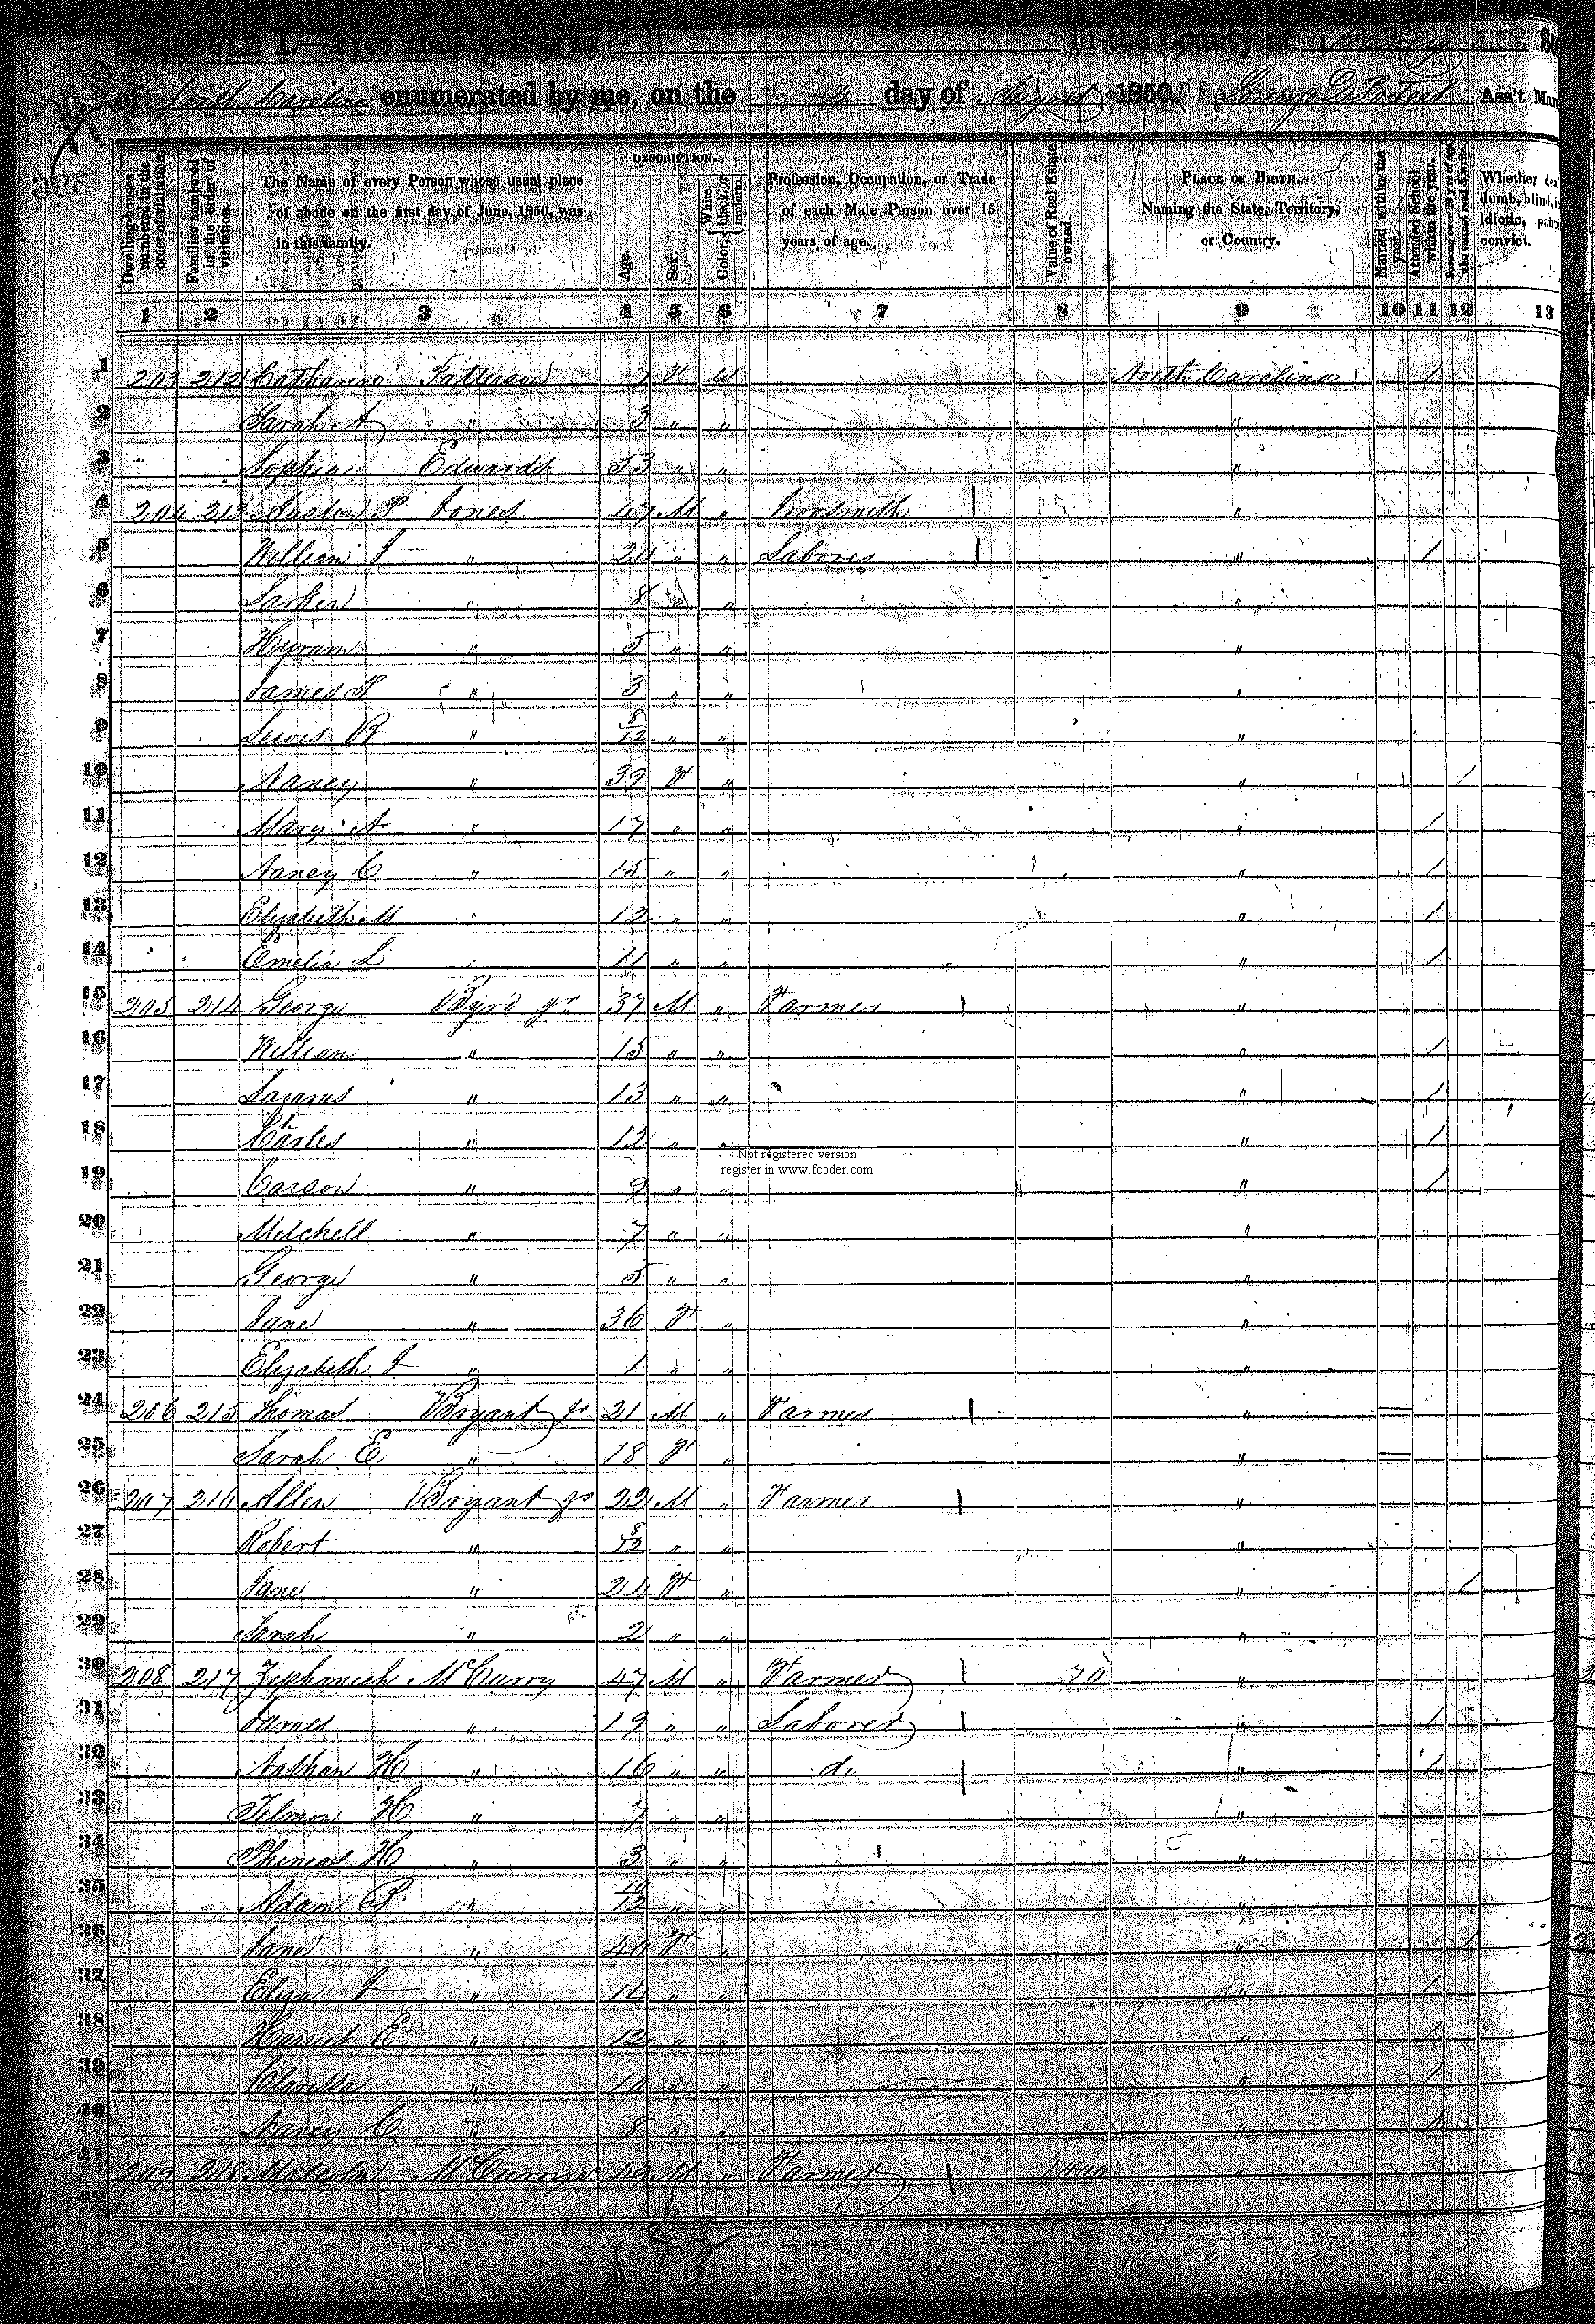 enumerated by me, on the day of August 1850. Ass't Mar
DESCRIPTION.
Dwelling-houses numbered in the order of visitation.
Families numbered in the order of visitation.
The Name of every Person whose usual place of abode on the first day of June, 1850, was in this family.
Age.
Sex.
Color, White, black, or mulatto.
Profession, Occupation, or Trade of each Male Person over 15 years of age.
Value of Real Estate owned.
PLACE OF BIRTH. Naming the State, Territory, or Country.
Married within the year.
Attended School within the year.
Whether deaf dumb, blind, idiotic, convict.
1 2 3 4 5 6 7 8 9 10 11 12 13
1 203 212 Catharine Patterson 7 F W North Carolina 1
2 Sarah A " 3 " " "
3 Sophia Edwards 53 " " "
4 204 213 P Jones 47 M " "
5 William J " 20 " " Laborer " 1
6 " 8 " "
7 Hyram " 5 " " "
8 James P " 3 " " "
9 Lewis R " 8/12 " " "
10 Nancy " 39 F " " 1
11 Mary A " 17 " " " 1
12 Nancy C " 15 " " " 1
13 Elizabeth M " 12 " " " 1
14 Emelia L " 11 " " " 1
15 205 214 George Byrd jr 37 M " Farmer "
16 William " 15 " " " 1
17 Lazarus " 13 " " " 1
18 Charles " 12 " " " 1
Not registered version
register in www.fcoder.com
19 Carson " 9 " " " 1
20 Mitchell " 7 " " "
21 George " 5 " " "
22 Jane " 36 F " "
23 Elizabeth J " 1 " " "
24 206 215 Thomas Bryant jr 21 M " Farmer "
25 Sarah E " 18 F " "
26 207 216 Allen Bryant jr 22 M " Farmer "
27 Robert " 8/12 " " "
28 Jane " 24 F " " 1
29 Sarah " 2 " " "
30 208 217 Zephaniah McCurry 47 M " Farmer "
31 James " 19 " " Laborer " 1
32 Nathan H " 16 " " do " 1
33 H " 7 " " "
34 Phineas H " 3 " " "
35 Adam P " 10/12 " "
36 Jane " 40 F " " 1
37 Eliza J " 14 " " " 1
38 Harriet E " 12 " " " 1
39 " " " 1
40 Nancy C " 8 " " " 1
41 McCurry M " Farmer
42